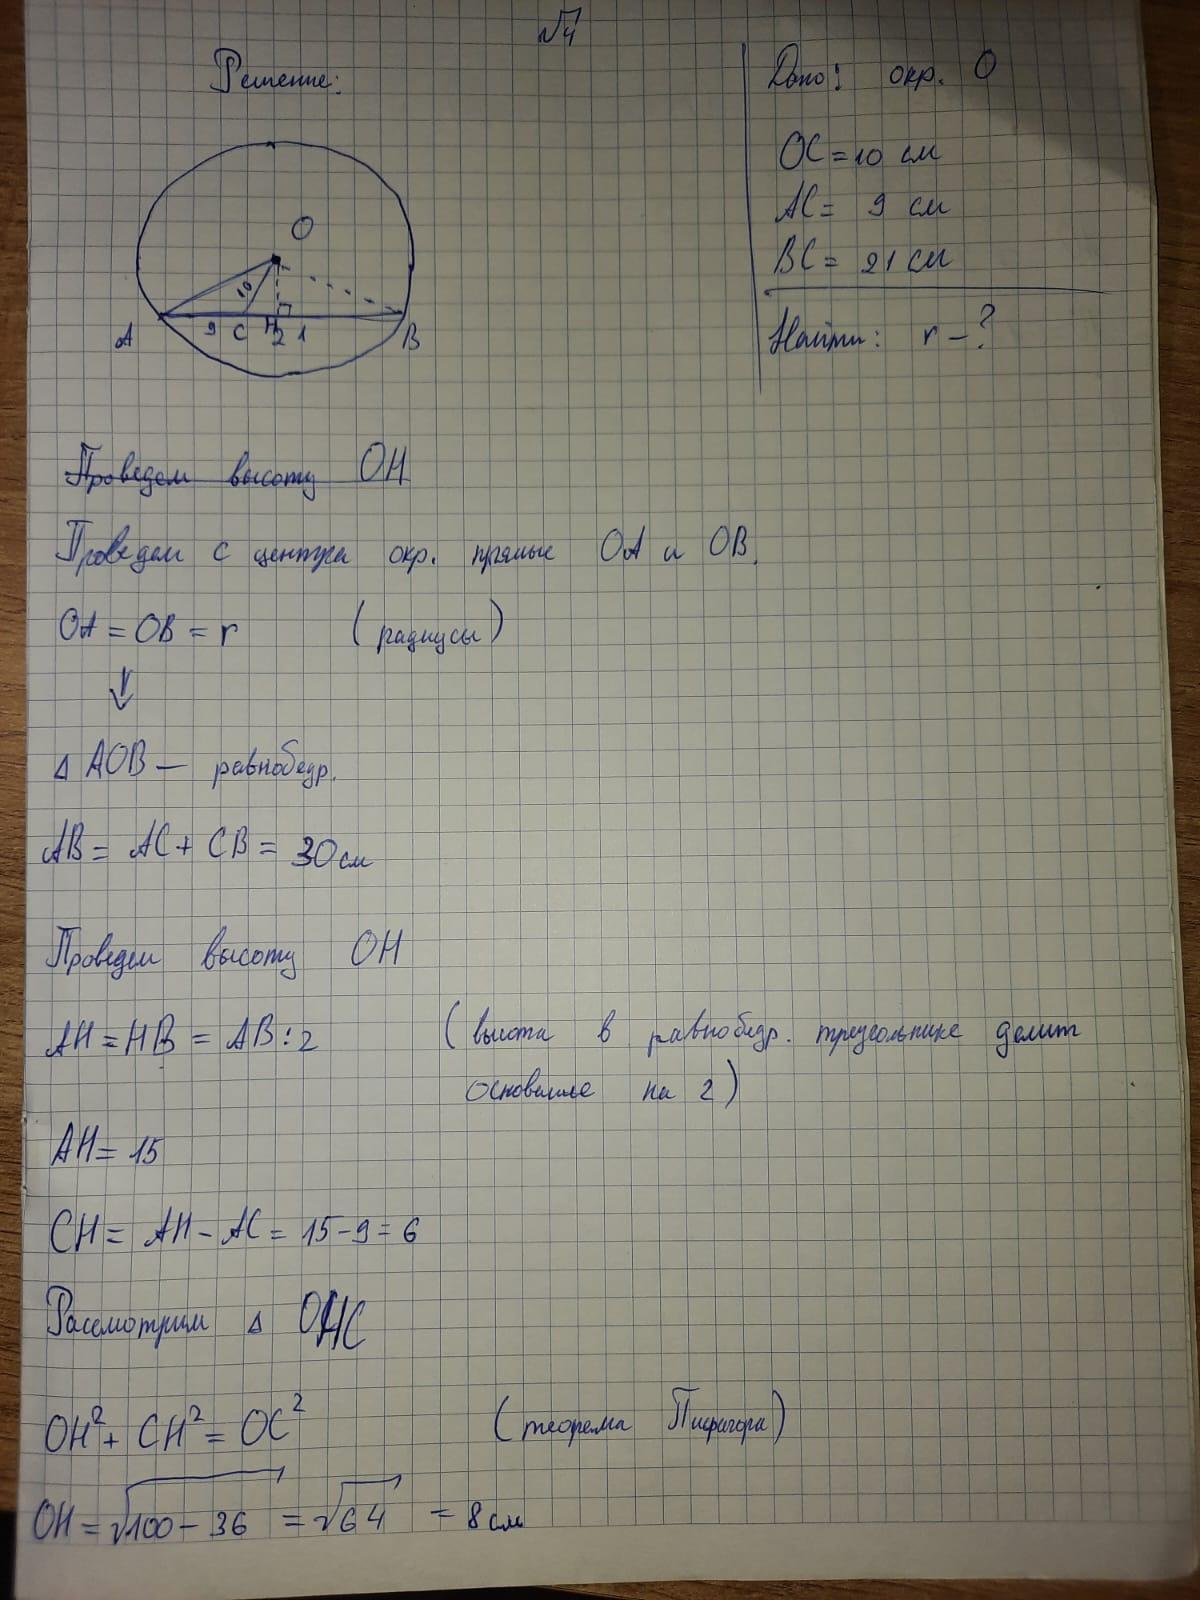 √4
Решение:
Дано: окр. O
OC = 10 см
AC = 9 см
BC = 21 см
Найти: r - ?
O
10
A 9 C H 21 B
Проведем высоту OH
Проведем с центра окр. прямые OA и OB.
OA = OB = r (радиусы)
⇓
Δ AOB — равнобедр.
AB = AC + CB = 30 см
Проведем высоту OH
AH = HB = AB : 2 (высота в равнобедр. треугольнике делит
основание на 2)
AH = 15
CH = AH - AC = 15 - 9 = 6
Рассмотрим Δ OHC
OH² + CH² = OC² (теорема Пифагора)
OH = √100 - 36 = √64 = 8 см